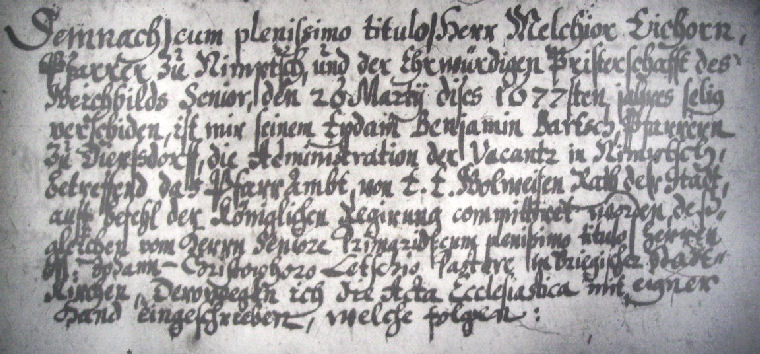 Demnach /cum plenissimo titulo/ Herr Melchior Eichorn,
Pfarrer zu Nimptsch, und der Ehrwürdigen Pristerschafft des
Weichbilds Senior, den 26 Martij dises 1677sten jahres selig
verschiden, ist mir seinem Eydam Benjamin Bartsch, Pfarrern
zu Dierßdorff, die Administration der Vacantz in Nimptsch,
betreffend das Pfarr Ambt, von t. t. Wolweisen Rath der Stadt,
auff befehl der Königlichen Regirung committiret worden, deß-
gleichen vom Herrn Seniore Primario /cum plenissimo titulo/ Herren
Christophoro Letschio Pastore in Briegischer Stadt-
Kirchen, Deswegen ich die Acta Ecclesiastica mit eigner
Hand eingeschrieben, welche folgen: